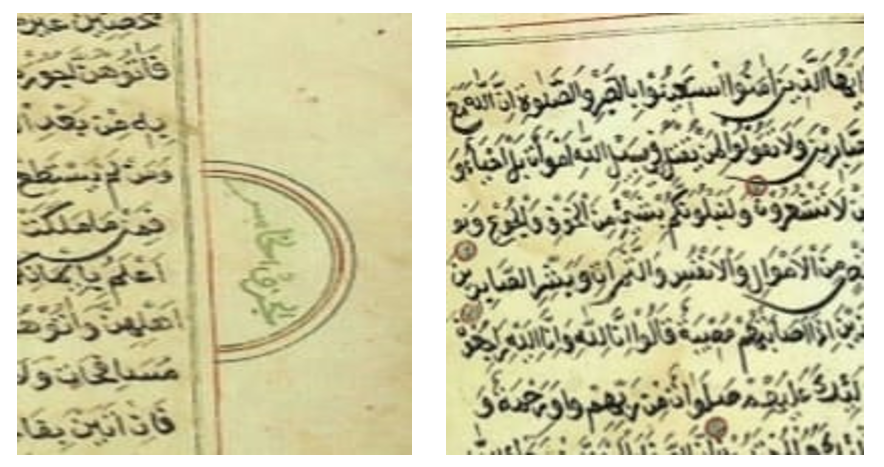 محصنين غير
فَاتُوهُنَّ اُجُورَ
بِهِ مِنْ بَعْدِ ا
وَمَنْ لَمْ يَسْتَطِعْ
فَمِنْ مَا مَلَكَتْ
اَعْلَمُ بِاِيمَانِكُ
اَهْلِهِنَّ وَاتُوهُ
مُسَافِحَاتٍ وَلَا
فَاِنْ اَتَيْنَ بِفَا
الجزء الخامس
اَيُّهَا الَّذِينَ اٰمَنُوا اسْتَعِينُوا بِالصَّبْرِ وَالصَّلٰوةِ اِنَّ اللّٰهَ مَعَ
صَابِرِينَ وَلَا تَقُولُوا لِمَنْ يُقْتَلُ فِي سَبِيلِ اللّٰهِ اَمْوَاتٌ بَلْ اَحْيَاءٌ وَ
لَا تَشْعُرُونَ وَلَنَبْلُوَنَّكُمْ بِشَيْءٍ مِنَ الْخَوْفِ وَالْجُوعِ وَنَ
مِنَ الْاَمْوَالِ وَالْاَنْفُسِ وَالثَّمَرَاتِ وَبَشِّرِ الصَّابِرِينَ
اِذَا اَصَابَتْهُمْ مُصِيبَةٌ قَالُوا اِنَّا لِلّٰهِ وَاِنَّا اِلَيْهِ رَاجِعُونَ
لٰئِكَ عَلَيْهِمْ صَلَوَاتٌ مِنْ رَبِّهِمْ وَرَحْمَةٌ وَ